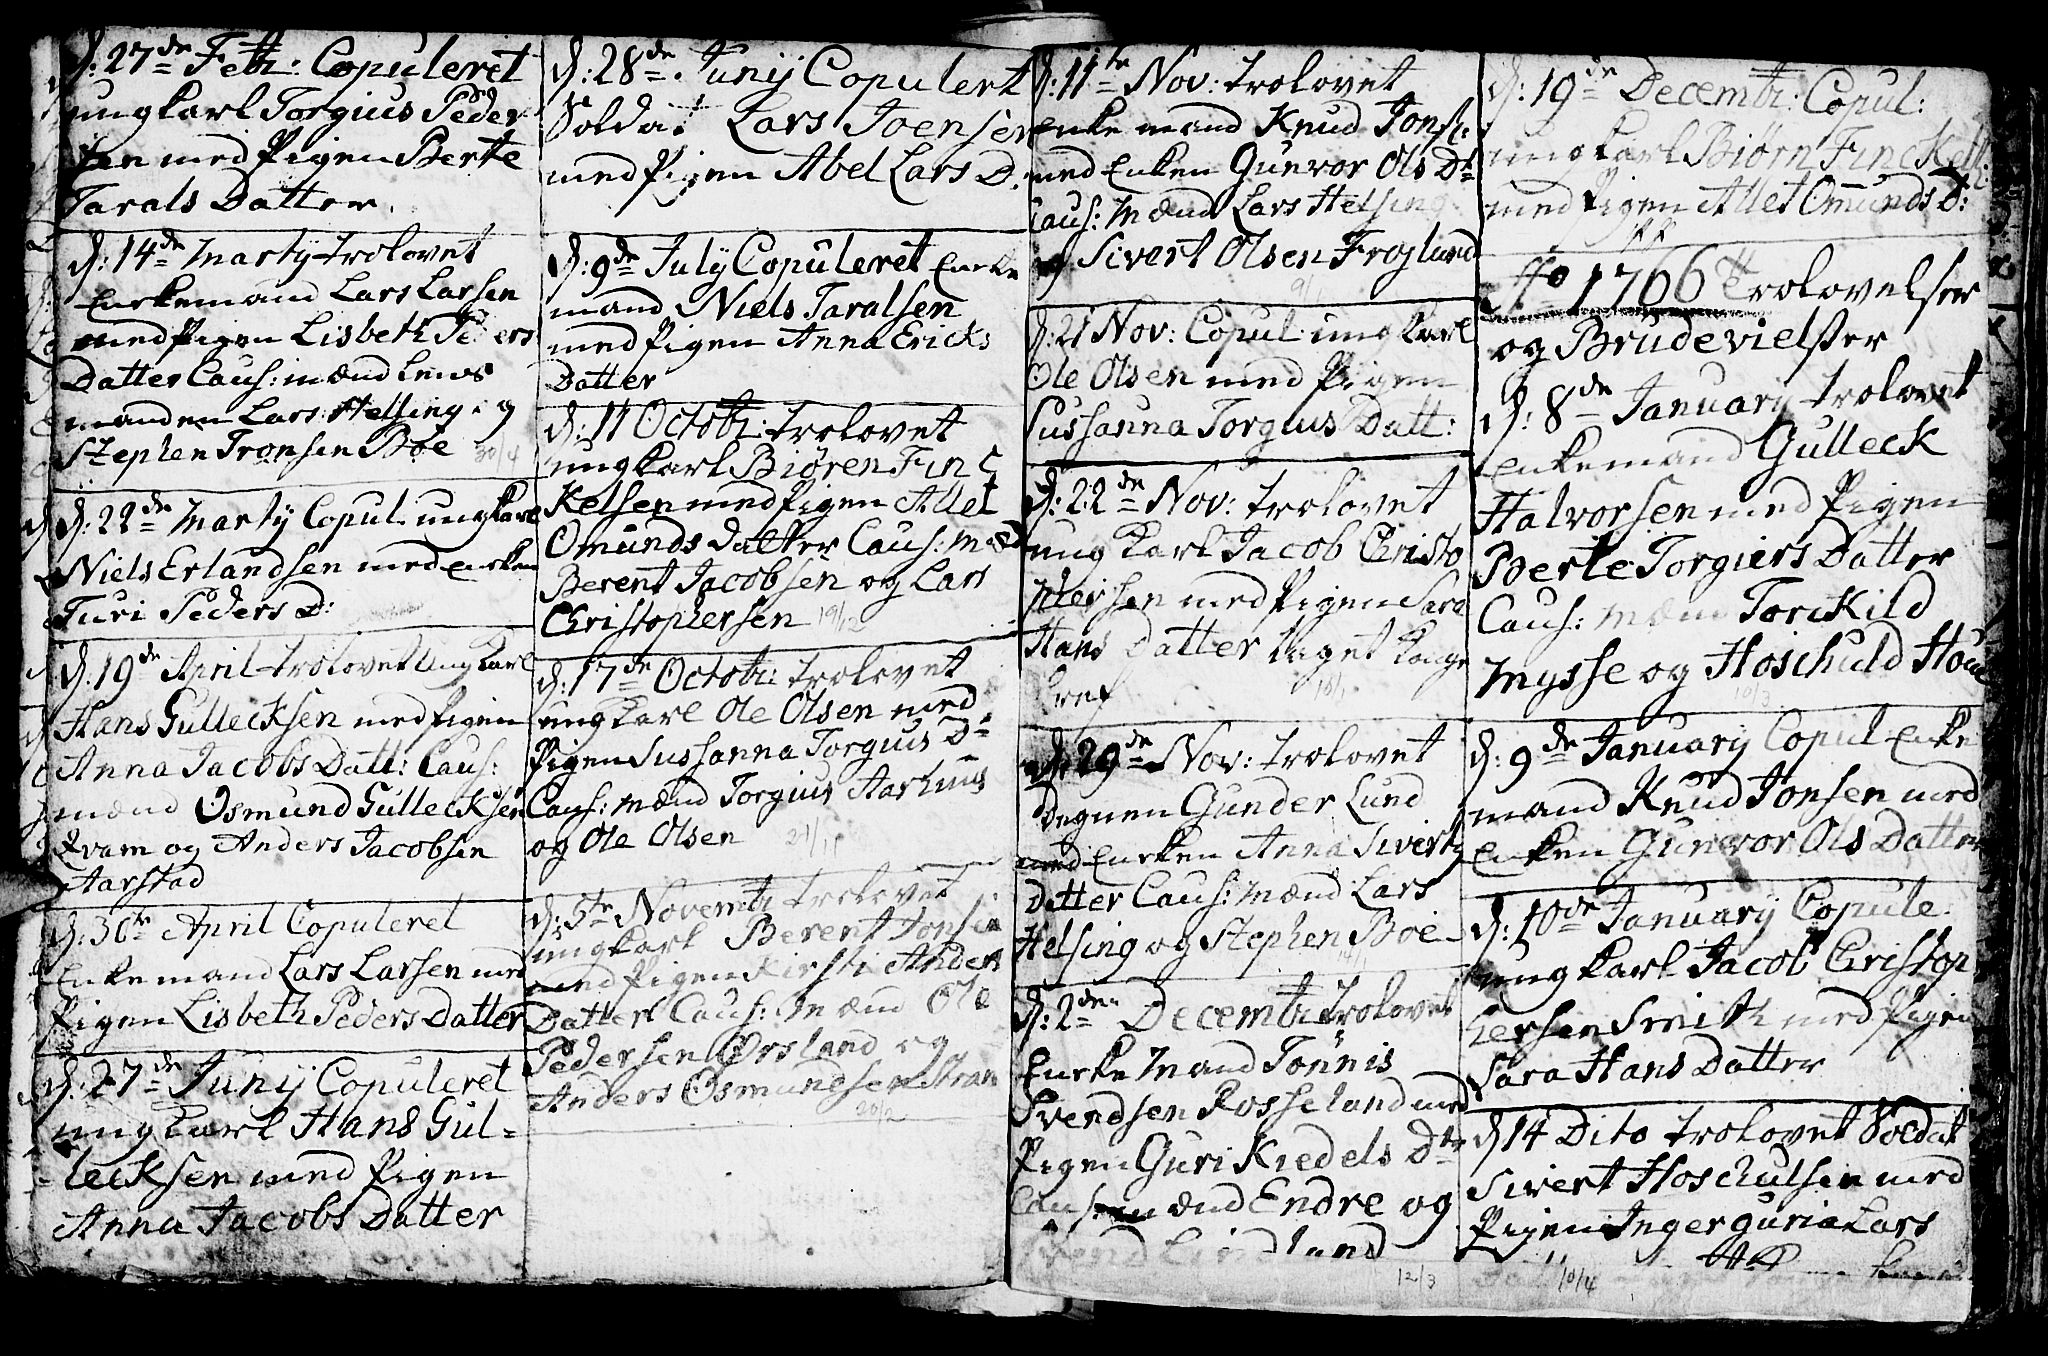 d: 27de Febr: Copuleret
ungkarl Torgius Peder
sen med Pigen Berte
Tarals Datter
d: 14de Marty trolovet
Enkemand Lars Larsen
med Pigen Lisbeth Peders
Datter Caus: mænd Lens
manden Lars Helsing og
Stephen Tronsen Boe 30/4
d: 22de Marty Copul. ungkarl
Niels Erlandsen med Enken
Turi Peders D:
d: 19de April trolovet Ungkarl
Hans Gullecksen med Pigen
Anna Jacobs Datt: Caus:
mænd Osmund Gullecksen
Kvam og Anders Jacobsen
Aarstad
d: 30te April Copuleret
Enkemand Lars Larsen med
Pigen Lisbeth Peders Datter
d: 27de Junij Copuleret
ungkarl Hans Gul=
lecksen med Pigen
Anna Jacobs Datter
d: 28de Junij Copulert
Soldat Lars Joensen
med Pigen Abel Lars D.
d: 9de July Copuleret Encke
mand Niels Taralsen
med Pigen Anna Ericks
Datter
d: 11 Octobr: trolovet
ungkarl Biøren Finc
Kelsen med Pigen Allet
Omunds Datter Caus: mænd
Berent Jacobsen og Lars
Christophersen 19/12
d: 17de Octobr: trolovet
ungkarl Ole Olsen med
Pigen Sussanna Torguis D=
Caus: mænd Torgius Aarhuus
og Ole Olsen 21/11
d: 5te Novembr trolovet
ungkarl Berent Jonsen
med Pigen Kirsti Anders
Datter Caus: Mænd Ole
Pedersen Ørsland og
Anders Osmundsen Stran
20/2
d: 11te Nov: trolovet
Enke mand Knud Jonsen
med Enken Gunvor Ols Dr
Caus: Mænd Lars Helsing
og Sivert Olsen Froglund
9/1
d: 21 Nov: Copul ungkarl
Ole Olsen med Pigen
Sussanna Torgius Datt:
d: 22de Nov: trolovet
ung karl Jacob Christo
phersen med Pigen Sara
Hans Datter taget Konge
bref 10/1
d: 29de Nov: trolovet
Degnen Gunder Lund
med Encken Anna Siverts
Datter Caus: Mænd Lars
Helsing og Stephen Boe
d: 2den Decembr trolovet
Encke Mand Tønnis
Svendsen Rosseland med
Pigen Guri Kiedels Dtr
Caus: mænd Endre og
Svend Lindland
12/3
d: 19de Decembr: Copul:
ungkarl Biørn Finckelss:
med Pigen Allet Omunds D:
Ao 1766 Trolovelser
og Brudevielser
d: 8de January trolovet
Enkemand Gulleck
Halvorsen med Pigen
Berte Torgiers Datter
Caus: mæn Torckild
Mysse og Hoschuld Houe
10/3
d: 9de January Copul Enke
mand Knud Jonsen med
Enken Gunvor Ols Datter
d: 10de January Copule
ungkarl Jacob Christop
hersen Smith med Pigen
Sara Hans Datter
d 14 Dito trolovet Soldat
Sivert Hoschulsen med
Pigen Inger guria Lars
10/4